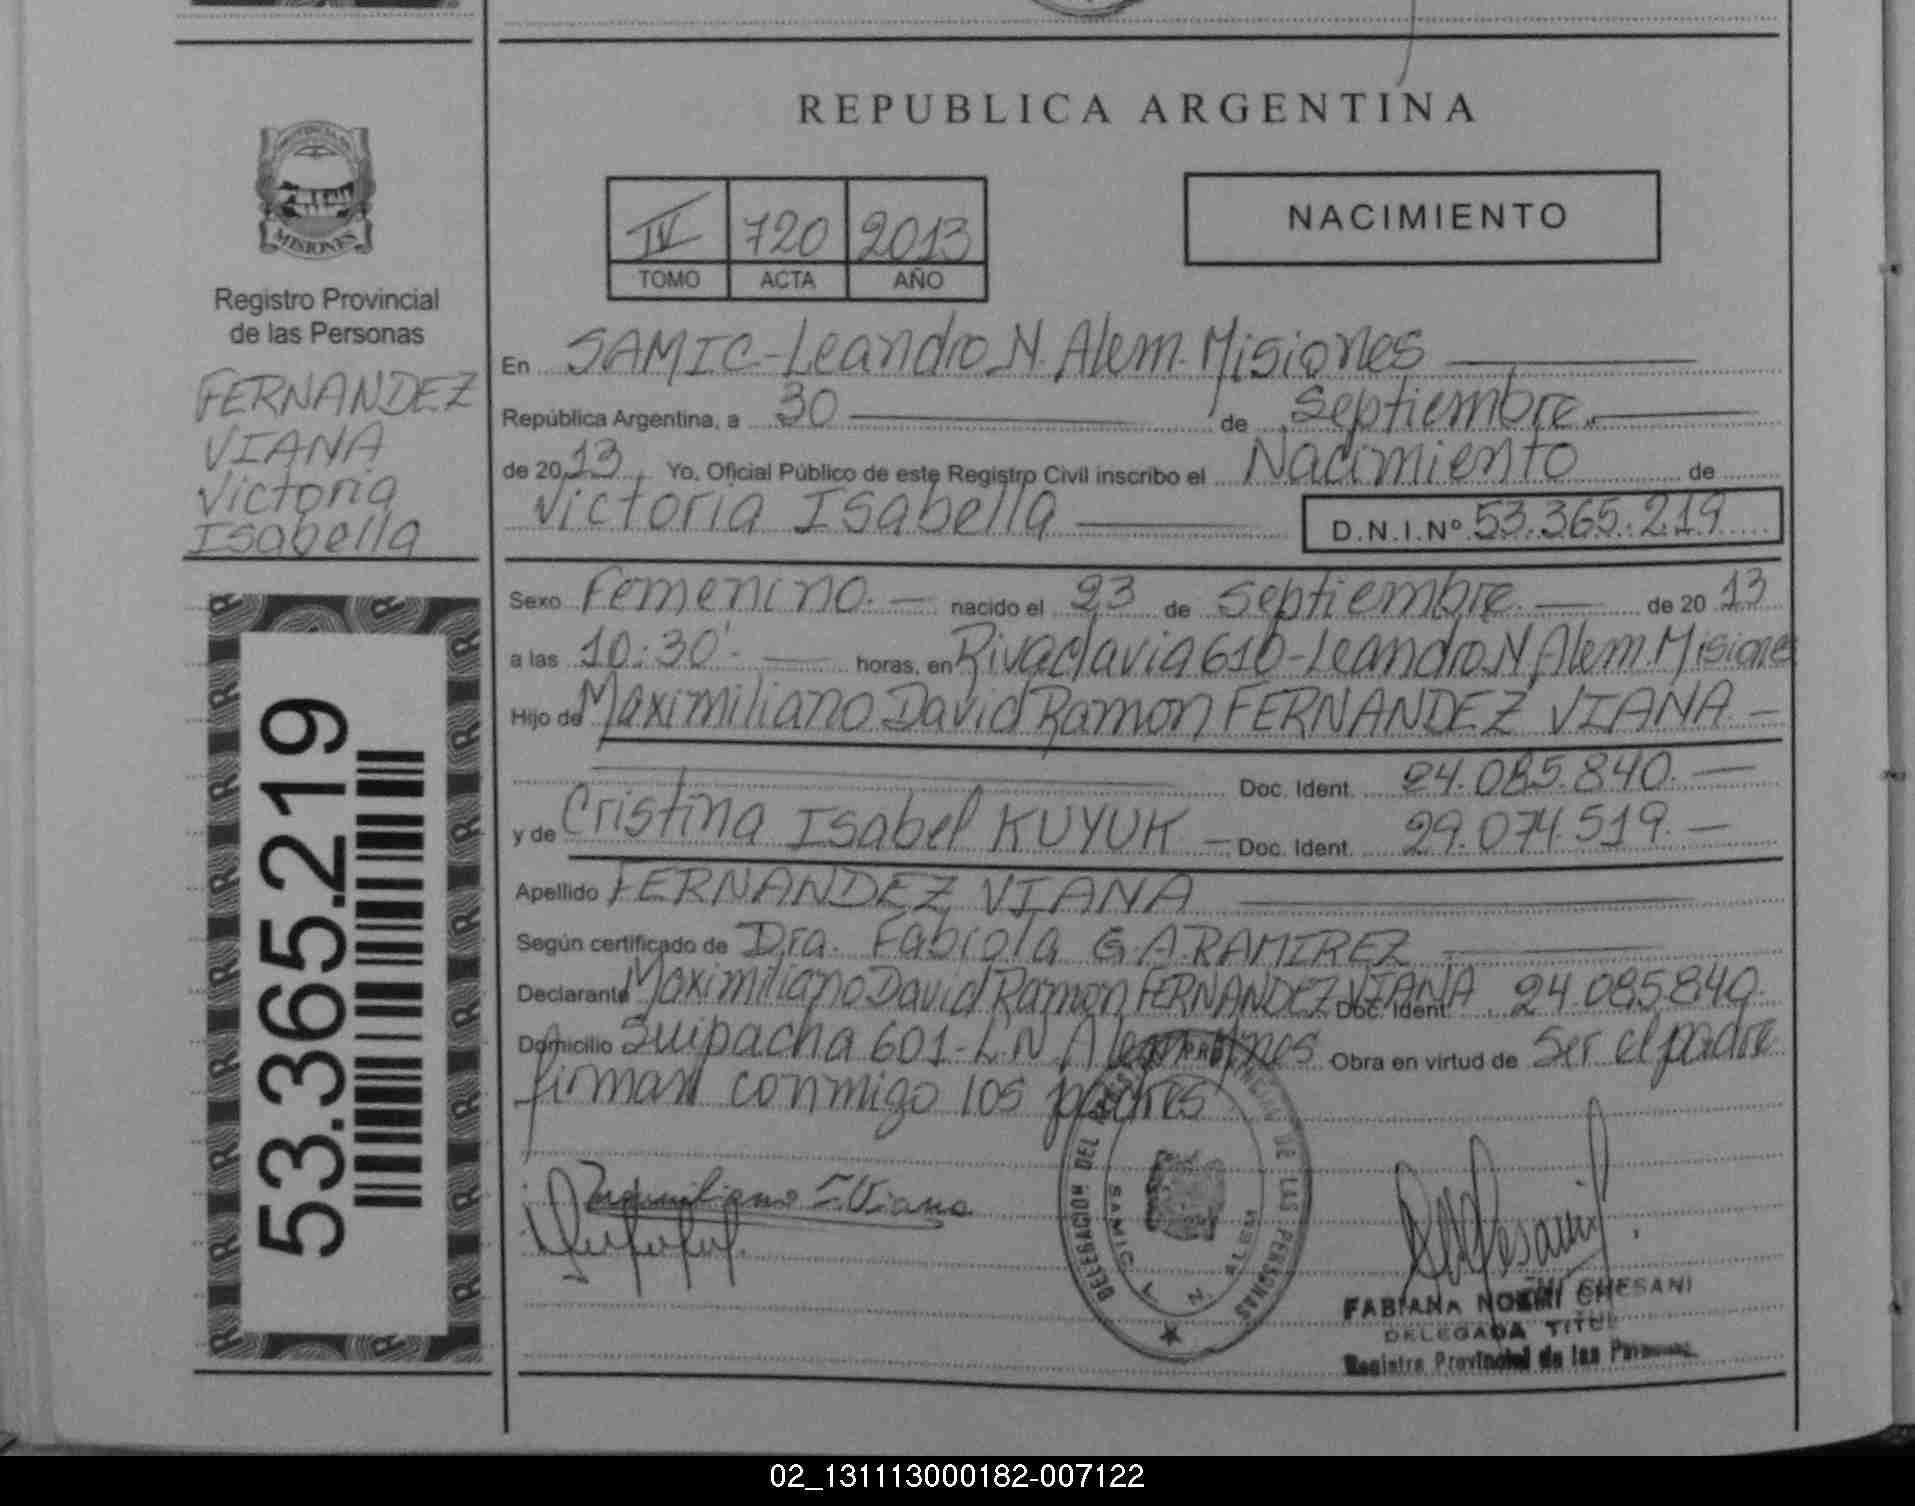 REPUBLICA ARGENTINA
PROVINCIA DE
MISIONES
Registro Provincial
de las Personas
FERNANDEZ
VIANA
Victoria
Isabella
53.365.219
IV 720 2013
TOMO ACTA AÑO
NACIMIENTO
En SAMIC-Leandro N. Alem. Misiones
República Argentina, a 30 de Septiembre.
de 2013 Yo, Oficial Público de este Registro Civil inscribo el Nacimiento de
Victoria Isabella D.N.I.Nº 53.365.219
Sexo Femenino. nacido el 23 de Septiembre. de 20 13
a las 10:30'- horas, en Rivadavia 610-Leandro N Alem. Misiones
Hijo de Maximiliano David Ramon FERNANDEZ VIANA
Doc. Ident. 24.085.840.
y de Cristina Isabel KUYUK Doc. Ident. 29.074.519.
Apellido FERNANDEZ VIANA
Según certificado de Dra. Fabiola G.A.RAMIREZ
Declarante Maximiliano David Ramon FERNANDEZ VIANA Doc. Ident. 24.085.840.
Domicilio Suipacha 601-L.N. Alem Mnes Obra en virtud de Ser el padre
firman conmigo los padres
Maximiliano F. Viana
DELEGACION DEL REGISTRO PROVINCIAL DE LAS PERSONAS
SAMIC L. N. ALEM
FABIANA NOEMI CHESANI
DELEGADA TITUL
Registro Provincial de las Personas
02_131113000182-007122